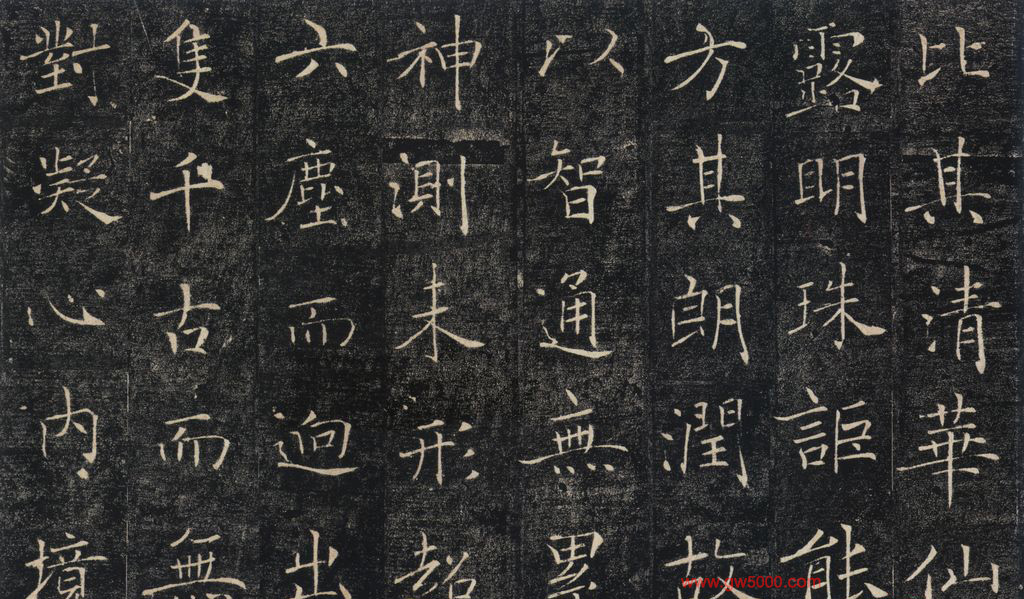 比其清華仙
露明珠詎能
方其朗潤故
以智通無累
神測未形超
六塵而迥出
隻千古而無
對凝心內境
www.gw5000.com